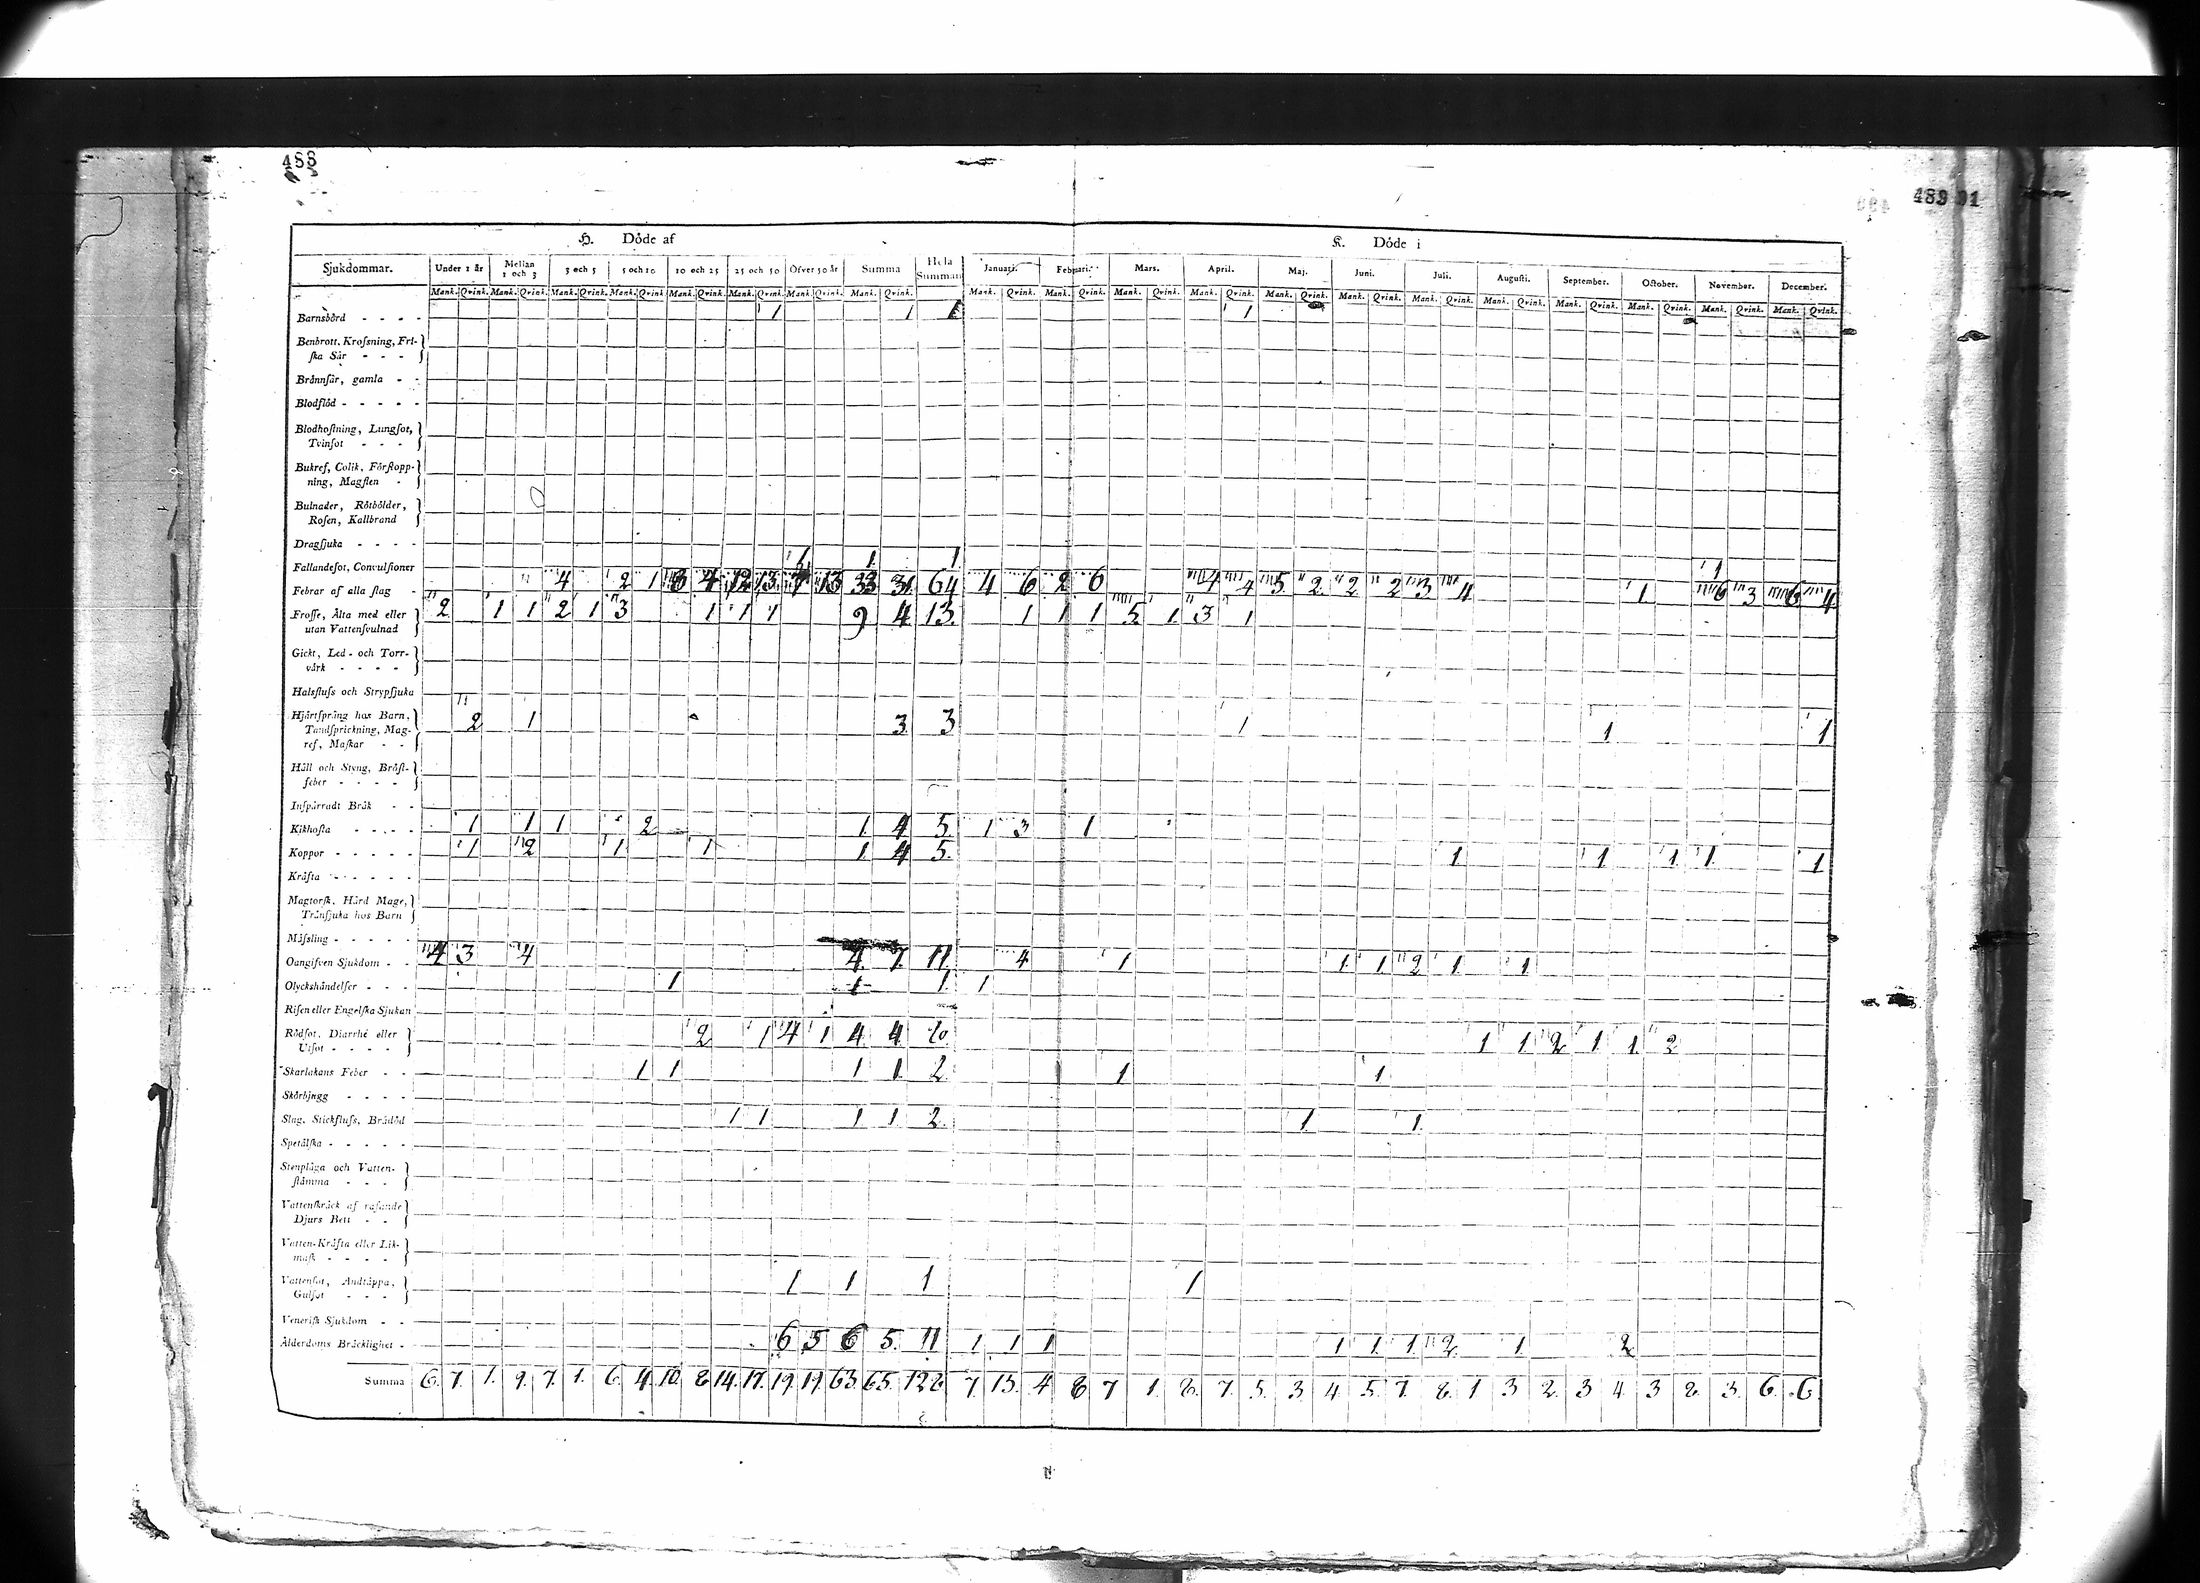 488
489 91
H. Döde af K. Döde i
Sjukdommar. Under 1 år Mellan 1 och 3 3 och 5 5 och 10 10 och 25 25 och 50 Öfver 50 år Summa Hela Summan Januari. Februari. Mars. April. Maj. Juni. Juli. Augusti. September. October. November. December.
Mank. Qvink. Mank. Qvink. Mank. Qvink. Mank. Qvink. Mank. Qvink. Mank. Qvink. Mank. Qvink. Mank. Qvink. Mank. Qvink. Mank. Qvink. Mank. Qvink. Mank. Qvink. Mank. Qvink. Mank. Qvink. Mank. Qvink. Mank. Qvink. Mank. Qvink. Mank. Qvink. Mank. Qvink. Mank. Qvink.
Barnsbörd - - - - 1 1 1 1
Benbrott, Kroſsning, Fri-
ſka Sår - - -
Brännſår, gamla - -
Blodflöd - - - - -
Blodhoſtning, Lungſot,
Tvinſot - - -
Bukref, Colik, Förſtopp-
ning, Magſten -
Bulnader, Rötbölder,
Roſen, Kallbrand
Dragſjuka - - - -
Fallandeſot, Convulſioner 1 1 1 1
Febrar af alla ſlag - 4 2 1 8 4 12 13 7 13 33 31 64 4 6 2 6 4 4 5 2 2 2 3 4 1 6 3 6 4
Froſſe, Älta med eller 2 1 1 2 1 3 1 1 1 9 4 13. 1 1 1 5 1 3 1
utan Vattenſvulnad
Gickt, Led- och Torr-
värk - - - -
Halsfluſs och Strypſjuka
Hjärtſpräng hos Barn, 2 1 3 3 1 1 1
Tandſprickning, Mag-
ref, Maſkar - -
Håll och Styng, Bröſt-
feber - - - -
Inſpärradt Bråk - -
Kikhoſta - - - - 1 1 1 2 1 4 5 1 3 1
Koppor - - - - - 1 2 1 1 1 4 5 1 1 1 1 1
Kräfta - - - - -
Magtorſk, Hård Mage,
Tränſjuka hos Barn
Mäſsling - - - - -
Oangifven Sjukdom - - 4 3 4 4 7 11 4 1 1 1 2 1 1
Olyckshändelſer - - - 1 1 1 1
Riſen eller Engelſka Sjukan
Rödſot, Diarrhé eller 2 1 4 1 4 4 8 1 1 2 1 1 2
Utſot - - - -
Skarlakans Feber - - 1 1 1 1 2 1 1
Skörbjugg - - - -
Slag, Stickfluſs, Brådöd 1 1 1 1 2 1 1
Spetälſka - - - - -
Stenplåga och Vatten-
ſtämma - - -
Vattenſkräck af raſande
Djurs Bett - -
Vatten-Kräfta eller Lik-
maſk - - - -
Vattenſot, Andtäppa, 1 1 1 1
Gulſot - - -
Veneriſk Sjukdom - -
Ålderdoms Bräcklighet - 6 5 6 5 11 1 1 1 1 1 1 2 1 2
Summa 6. 7. 1. 9. 7. 1. 6. 4. 10. 8 14. 17. 19. 19. 63. 65. 128 7. 13. 4 8 7 1. 8. 7. 5. 3. 4. 5. 7. 8. 1 3 2. 3 4. 3 2. 3. 6. 6.